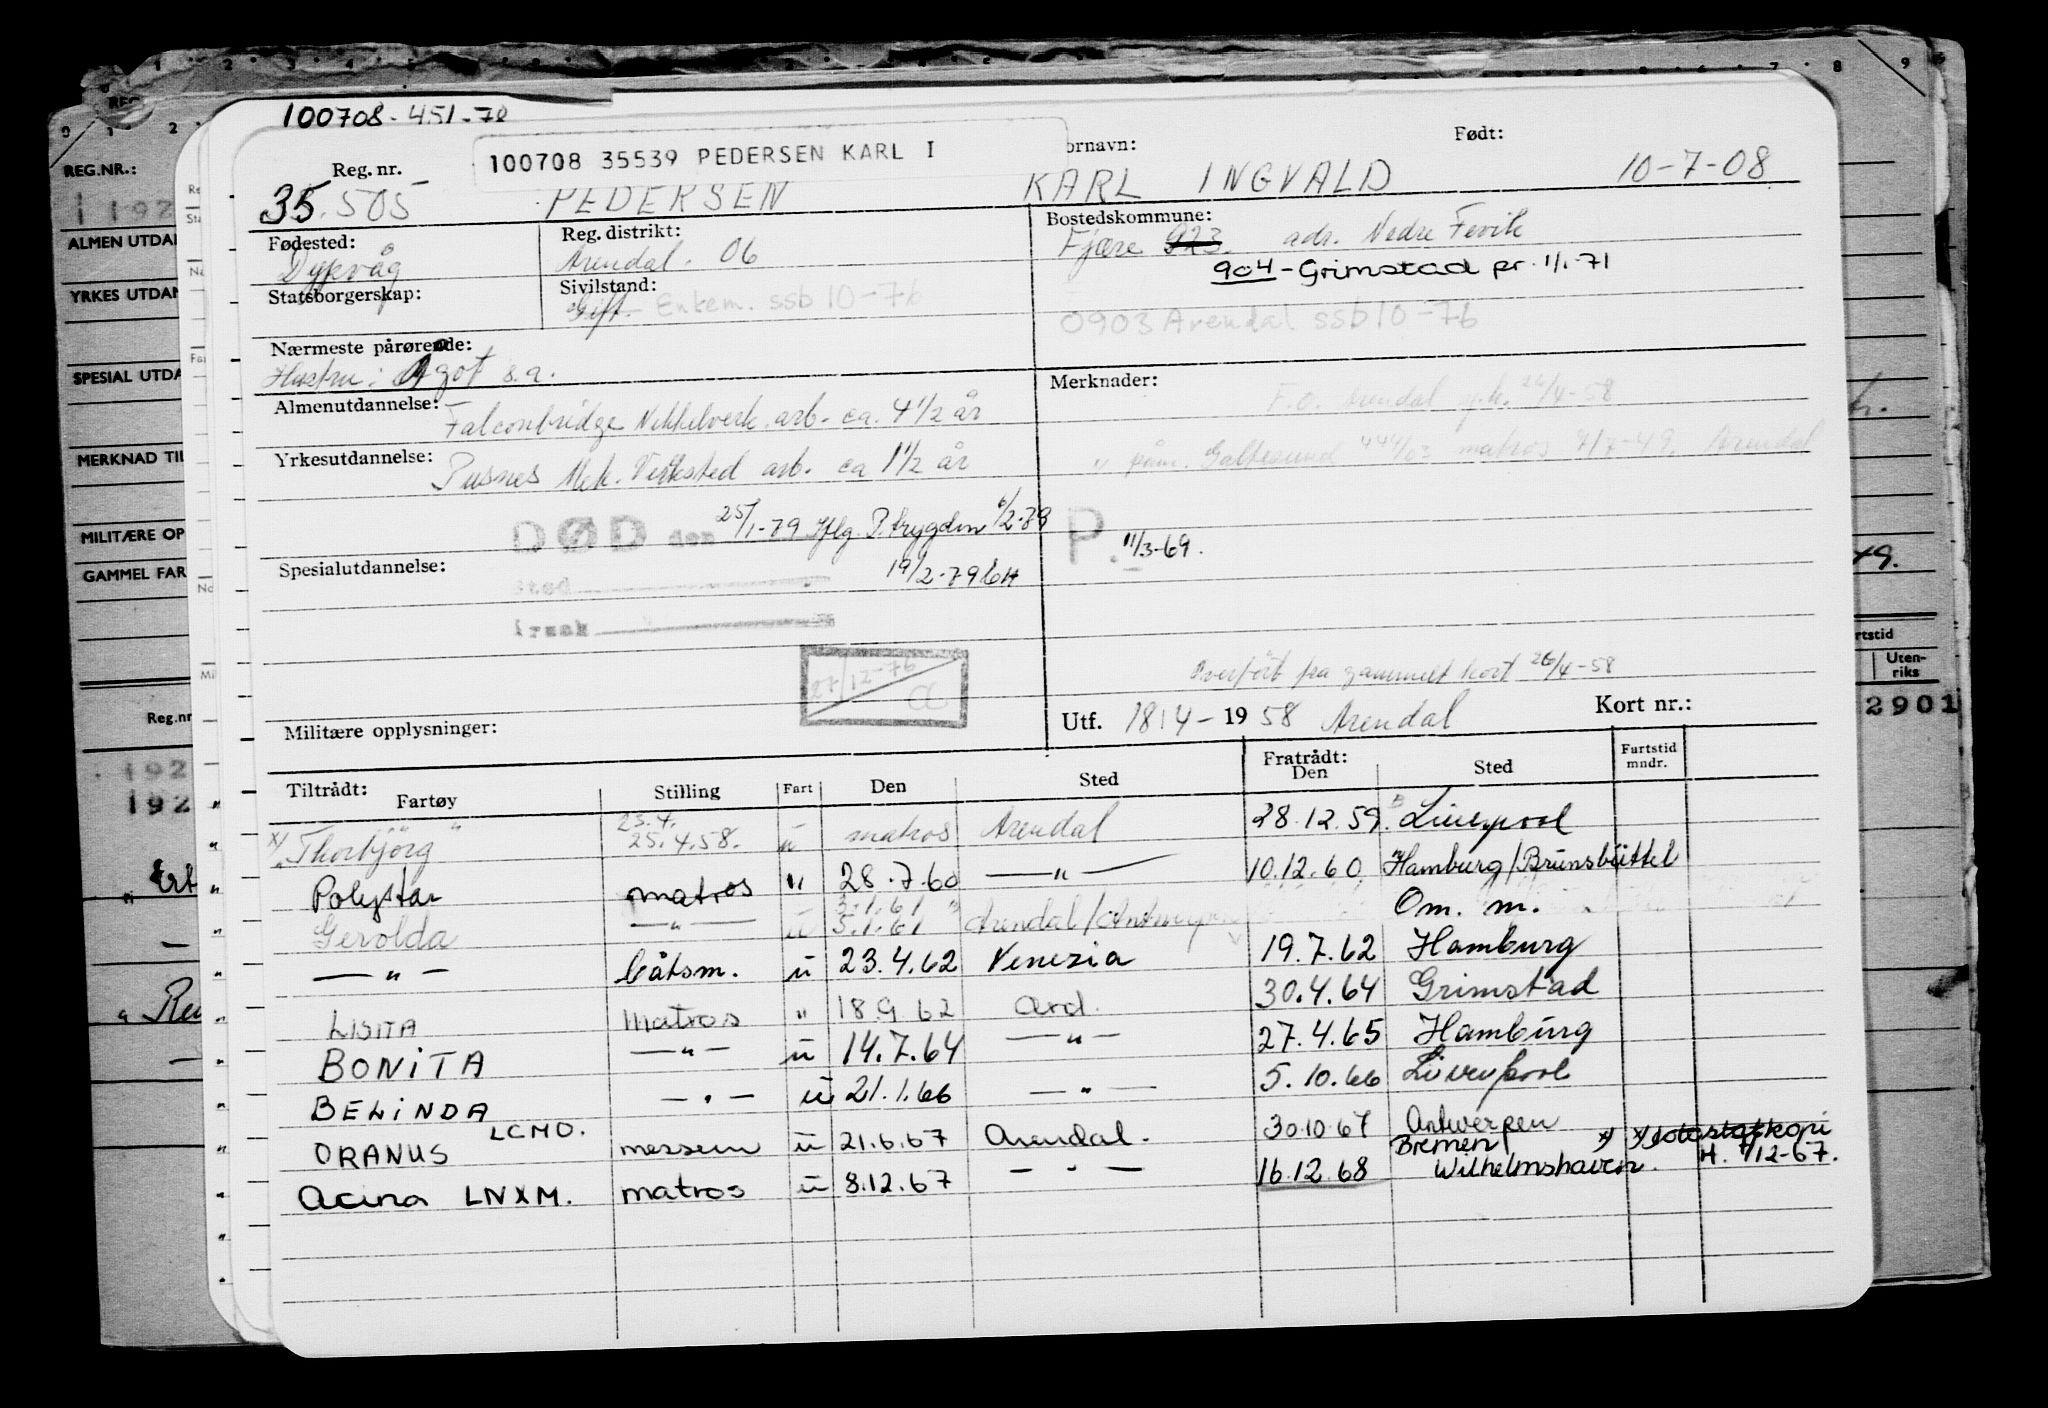 100708-451-78
100708 35539 PEDERSEN KARL I
Reg. nr. ornavn: Født:
35.505 PEDERSEN KARL INGVALD 10-7-08
Fødested: Reg. distrikt: Bostedskommune:
Dypvåg Arendal. 06 Fjære 923. adr. Nedre Fevik
904-Grimstad pr. 1/1-71
Statsborgerskap: Sivilstand:
Gift - Enkem. ssb 10-76 0903 Arendal ssb 10-76
Nærmeste pårørende:
Hustru: Agot s.a.
Merknader:
Almenutdannelse: Falconbridge Nikkelverk arb. ca. 4 1/2 år
F.O. Arendal 26/4-58
Yrkesutdannelse: Pusnes Mek. Verksted arb. ca 1 1/2 år
Galtesund 444/03 matros 7/7-49. Arendal
DØD den 25/1-79 Iflg. P.trygden 6/2-79 P. 11/3-69.
Spesialutdannelse: 19/2-79 GH
sted
årsak
27/12-76
Overført fra gammelt kort 26/4-58
Militære opplysninger: Utf. 18/4-1958 Arendal Kort nr.:
Tiltrådt: Fartøy Stilling Fart Den Sted Fratrådt: Den Sted Fartstid mndr.
x/ Thorbjörg 23.4. 25.4.58. u matros Arendal 28.12.59. Liverpool
Polystar matros " 28.7.60 —"— 10.12.60 Hamburg/Brunsbüttel
Gerolda —"— u 3.1.61 5.1.61 Arendal/Antwerpen Om. m.
—"— båtsm. u 23.4.62 Venezia 19.7.62 Hamburg
LISITA matros " 18.9.62 Ard. 30.4.64 Grimstad
BONITA —"— u 14.7.64 —"— 27.4.65 Hamburg
BELINDA —"— u 21.1.66 —"— 5.10.66 Liverpool
ORANUS LCMO. messem u 21.6.67 Arendal. 30.10.67 Antwerpen Bremen x) x) fotostatkopi
Acina LNXM. matros u 8.12.67 —"— 16.12.68 Wilhelmshaven. H. 7/12-67.
REG.NR.:
1 192
ALMEN UTDA
YRKES UTDAN
SPESIAL UTDA
MERKNAD TIL
MILITÆRE OP
GAMMEL FAR
Reg.nr
192
192
rtstid
Uten-riks
2901